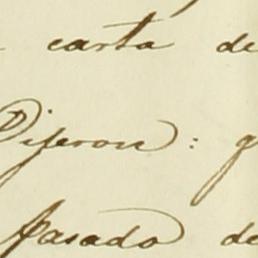 carta de
Dijeron: q
pasado de